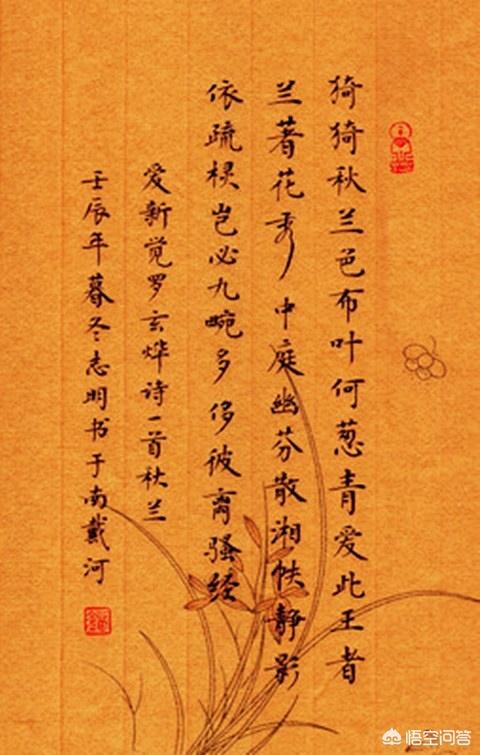 猗猗秋兰色布叶何葱青爱此王者
兰著花秀中庭幽芬散湘帙静影
依疏棂岂必九畹多侈彼离骚经
爱新觉罗玄烨诗一首秋兰
壬辰年暮冬志明书于南戴河
悟空问答